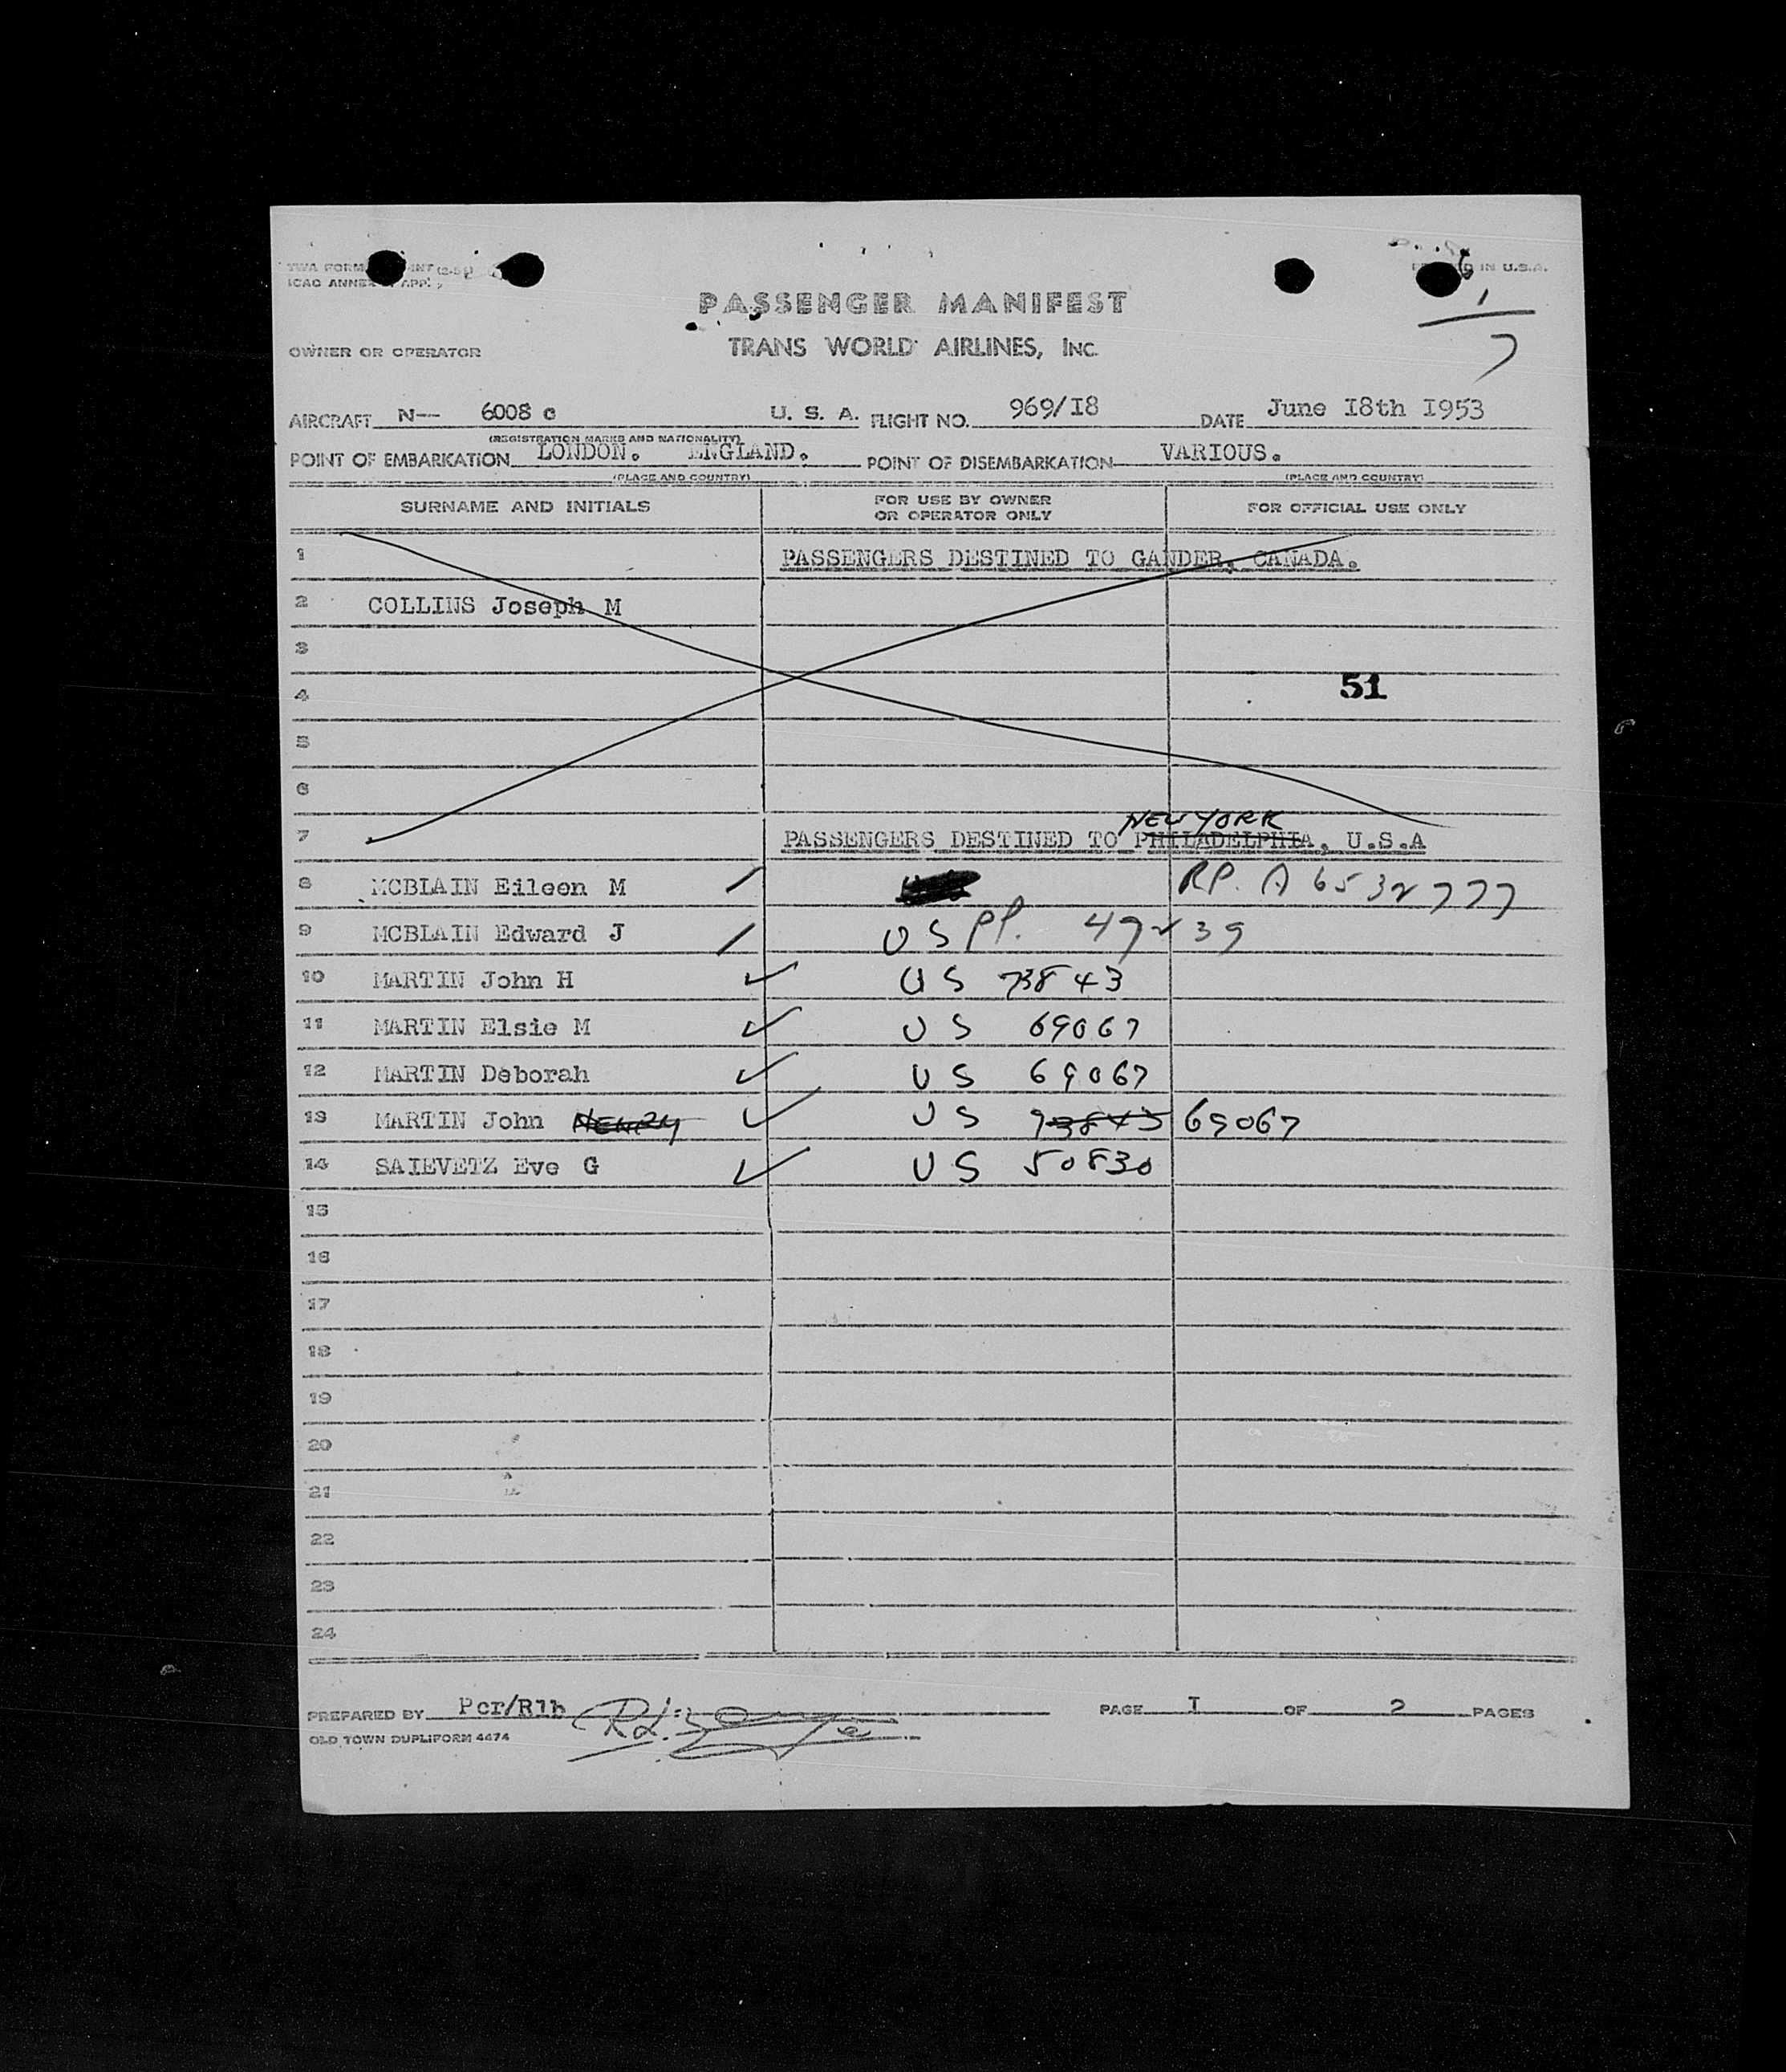 TWA FORM
PRINTED IN U.S.A.
ICAO ANNEX APP.
6
1
7
PASSENGER MANIFEST
TRANS WORLD AIRLINES, INC.
OWNER OR OPERATOR
AIRCRAFT N— 6008 c U. S. A. FLIGHT NO. 969/I8 DATE June I8th I953
(REGISTRATION MARKS AND NATIONALITY)
POINT OF EMBARKATION LONDON. ENGLAND. POINT OF DISEMBARKATION VARIOUS.
(PLACE AND COUNTRY) (PLACE AND COUNTRY)
SURNAME AND INITIALS FOR USE BY OWNER OR OPERATOR ONLY FOR OFFICIAL USE ONLY
1 PASSENGERS DESTINED TO GANDER, CANADA.
2 COLLINS Joseph M
3
4 51
5
6
NEW YORK
7 PASSENGERS DESTINED TO PHILADELPHIA, U.S.A
8 MCBLAIN Eileen M RP. A 6532777
9 MCBLAIN Edward J US PP. 47239
10 MARTIN John H US 73843
11 MARTIN Elsie M US 69067
12 MARTIN Deborah US 69067
13 MARTIN John HENRY US 73843 69067
14 SAIEVETZ Eve G US 50830
15
16
17
18
19
20
21
22
23
24
PREPARED BY Pcr/Rlb PAGE I OF 2 PAGES
OLD TOWN DUPLIFORM 4474